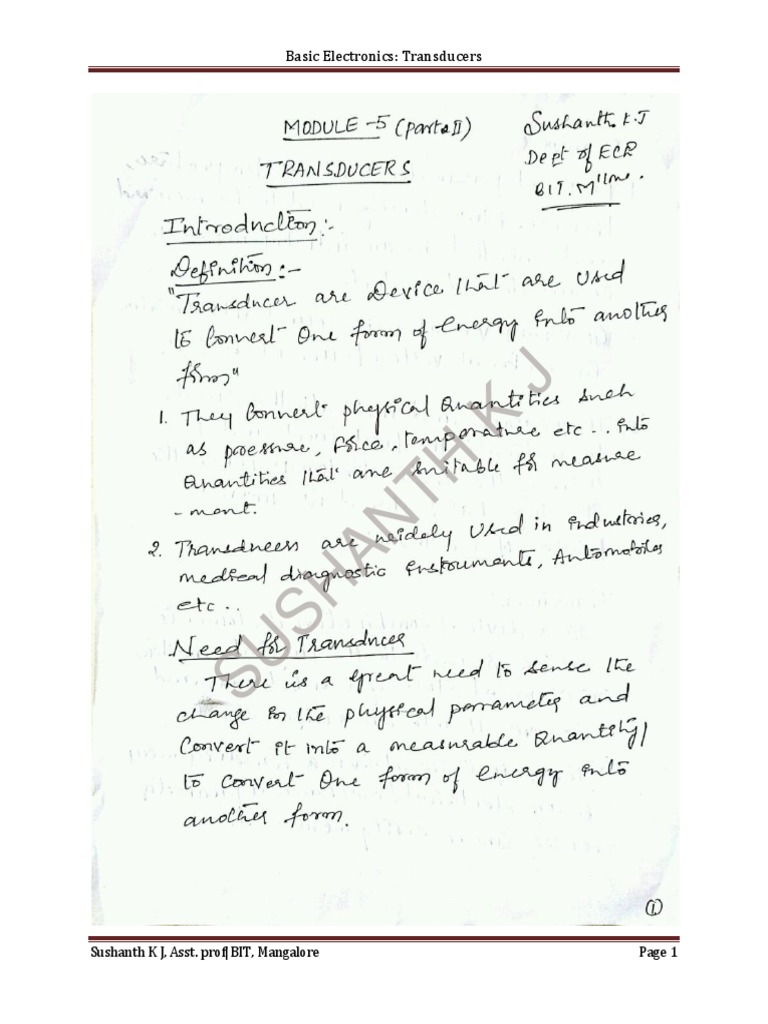 Basic Electronics: Transducers
MODULE -5 (Part II)
Sushanth. K.J
Dept of ECE
BIT. M'lore.
TRANSDUCERS
Introduction:-
Definition:-
"Transducer are Device that are used
to Convert One form of Energy into another
form"
1. They Convert physical Quantities such
as pressure, force, temperature etc... into
Quantities that are suitable for measure
-ment.
2. Transducers are widely Used in industries,
medical diagnostic instruments, Automobiles
etc..
Need for Transducer
There is a great need to sense the
change in the physical parameter and
Convert it into a measurable Quantity/
to convert One form of energy into
another form.
SUSHANTH K J
1
Sushanth K J, Asst. prof|BIT, Mangalore
Page 1